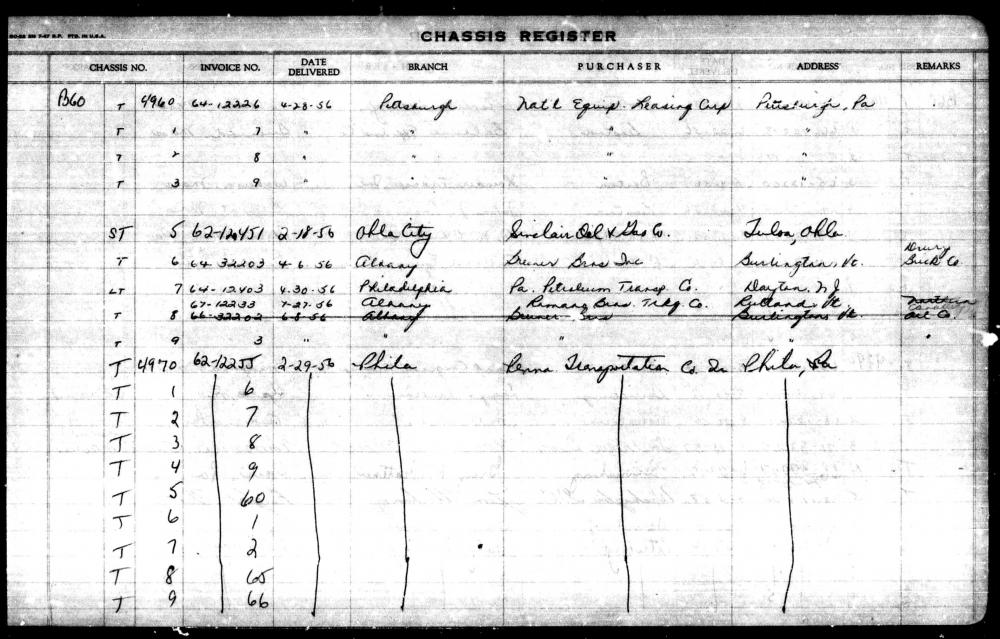 CHASSIS REGISTER
CHASSIS NO. INVOICE NO. DATE DELIVERED BRANCH PURCHASER ADDRESS REMARKS
B60 T 4960 64-12226 4-28-56 Pittsburgh Nat'l Equip. Leasing Corp Pittsburgh, Pa
T 1 7 " " " "
T 2 8 " " " "
T 3 9 " " " "
ST 5 62-12451 2-18-56 Okla City Sinclair Oil & Gas Co. Tulsa, Okla.
T 6 64-32203 4-6-56 Albany Bruner Bros Inc Burlington, Vt. Drury Brick Co
LT 7 64-12403 4-30-56 Philadelphia Pa. Petroleum Transp. Co. Dayton, NJ
67-12233 7-27-56 Albany Bros. Trkg. Co. Rutland, Vt.
T 8 66-32202 6-8-56 Albany Bruner Burlington, Vt. Oil Co.
T 9 3 " " " " "
T 4970 62-12255 2-29-56 Phila Penna Transportation Co. Phila, Pa
T 1 6
T 2 7
T 3 8
T 4 9
T 5 60
T 6 1
T 7 2
T 8 65
T 9 66